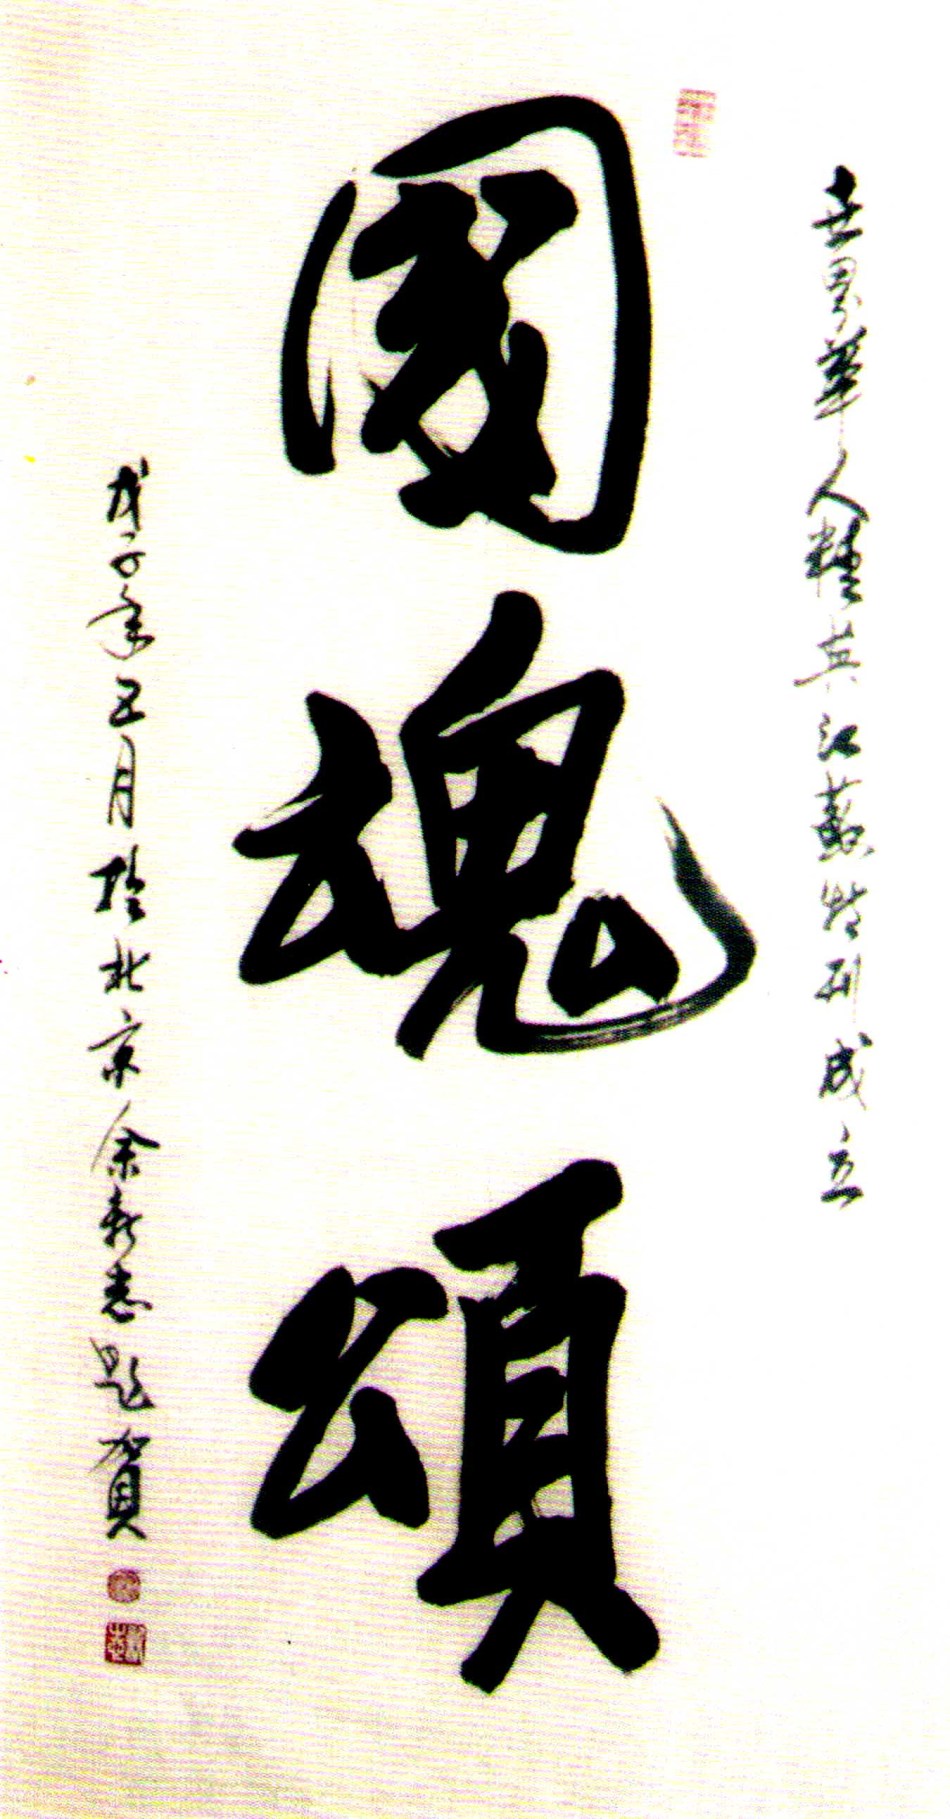 世界華人精英江蘇特刊成立
國魂頌
戊子年五月於北京余新志題賀